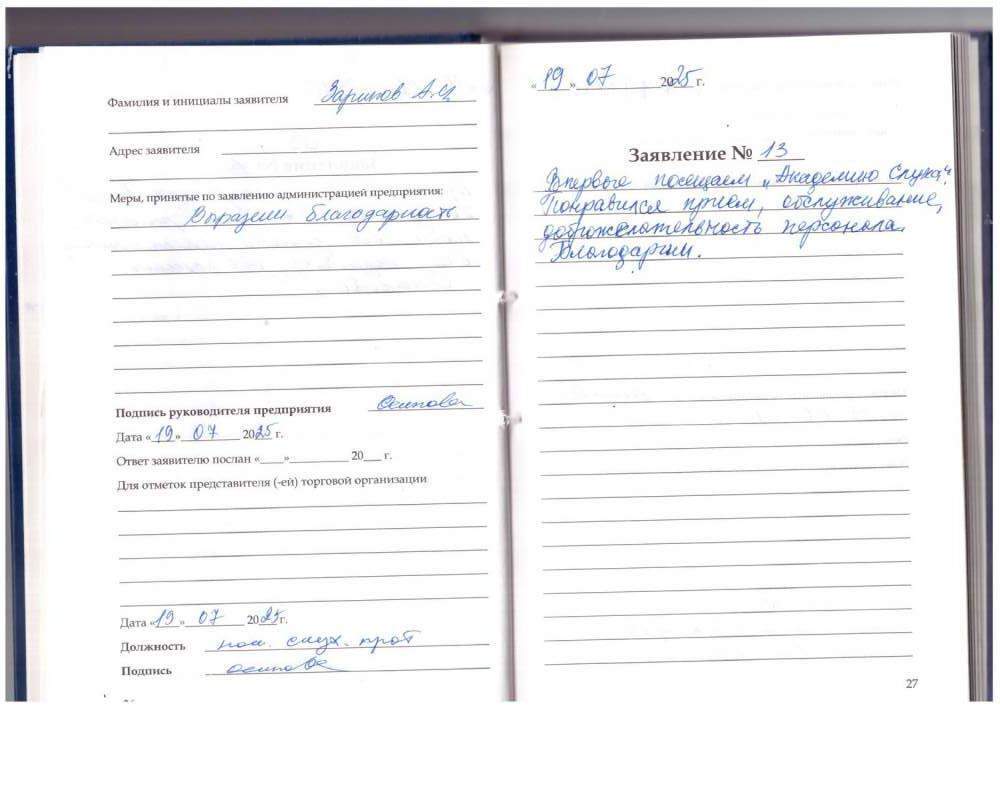 Фамилия и инициалы заявителя Зарипов А.И
Адрес заявителя
Меры, принятые по заявлению администрацией предприятия:
Выразили благодарность
Подпись руководителя предприятия Осипова
Дата «19» 07 2025 г.
Ответ заявителю послан «____»__________ 20___ г.
Для отметок представителя (-ей) торговой организации
Дата «19» 07 2025г.
Должность слух. прот
Подпись Осипова
«19» 07 2025 г.
Заявление № 13
Впервые посещаем „Академию Слуха“.
Понравился приём, обслуживание,
доброжелательность персонала.
Благодарим.
27